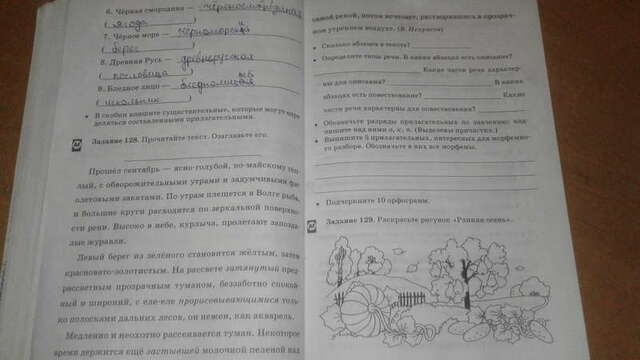 6. Чёрная смородина — черносмородиновый
( ягода )
7. Чёрное море — черноморский
( берег )
8. Древняя Русь — древнерусская
( пословица )
9. Бледное лицо — бледнолицый
( школьник )
• В скобки впишите существительные, которые могут
деляться составленными прилагательными.
Задание 128. Прочитайте текст. Озаглавьте его.
Прошёл сентябрь — ясно-голубой, по-майскому
лый, с обворожительными утрами и задумчивыми
олетовыми закатами. По утрам плещется в Волге рыба,
и большие круги расходятся по зеркальной поверхно-
сти реки. Высоко в небе, курлыча, пролетают запозда-
лые журавли.
Левый берег из зелёного становится жёлтым, затем
красновато-золотистым. На рассвете затянутый пред-
рассветным прозрачным туманом, беззаботно спокой-
ный и широкий, с еле-еле прорисовывающимися толь-
ко полосками дальних лесов, он нежен, как акварель.
Медленно и неохотно рассеивается туман. Некоторое
время держится ещё застывшей молочной пеленой над
рекой, потом исчезнет, растворившись в прозрач-
ном утреннем воздухе. (В. Некрасов)
• Сколько абзацев в тексте?
• Определите типы речи. В каких абзацах есть описание?
Какие части речи характер-
ны для описания? В каких
абзацах есть повествование? Какие
части речи характерны для повествования?
• Обозначьте разряды прилагательных по значению: над-
пишите над ними о, к, п. (Выделены причастия.)
• Выпишите 5 прилагательных, интересных для морфемно-
го разбора. Обозначьте в них все морфемы.
• Подчеркните 10 орфограмм.
Задание 129. Раскрасьте рисунок «Ранняя осень».